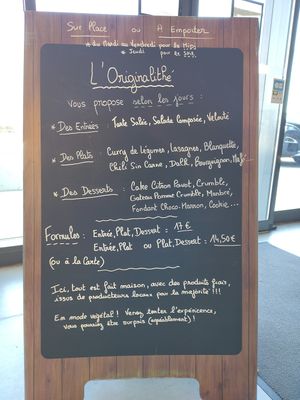 Sur Place ou A Emporter
* du Mardi au Vendredi pour le Midi
* Jeudi pour le soir
L'Originalithé
vous propose selon les jours :
* Des Entrées : Tarte Salée, Salade Composée, Velouté
* Des Plats : Curry de Légumes, Lasagnes, Blanquette,
Chili Sin Carne, Dalh, Bourguignon,
* Des Desserts : Cake Citron Pavot, Crumble,
Gateau Pomme Crumble, Marbré,
Fondant Choco. Marron, Cookie, ...
Formules : Entrée, Plat, Dessert : 17 €
Entrée, Plat ou Plat, Dessert : 14,50 €
(ou à la Carte)
Ici, tout est fait maison, avec des produits frais,
issus de producteurs locaux pour la majorité !!!
En mode végétal ! Venez tenter l'expérience,
vous pourriez être surpris (agréablement) !